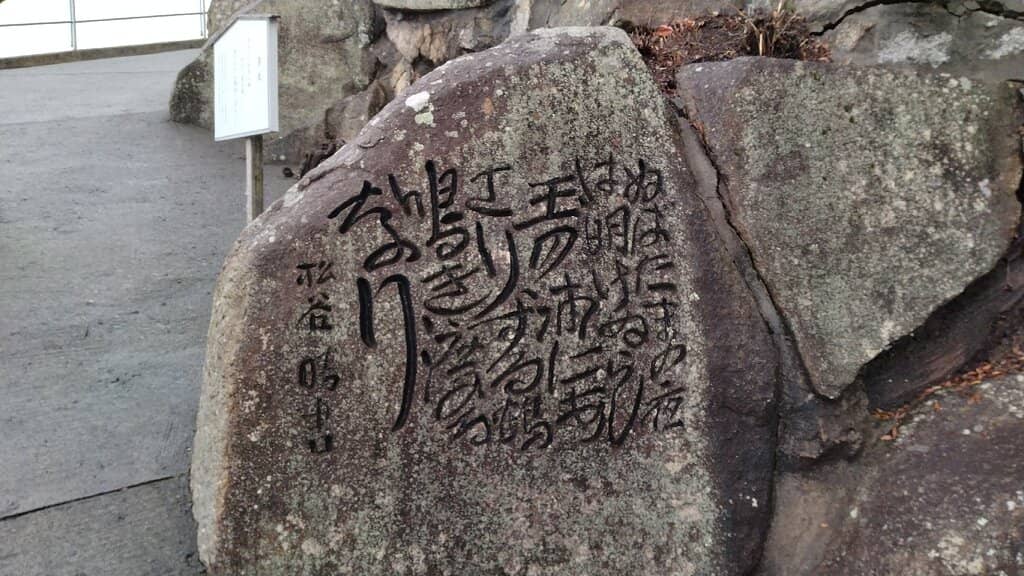 ぬばたまの夜
は明けぬらし
玉の浦にあ
さりする鶴
鳴き渡る
なり
松谷